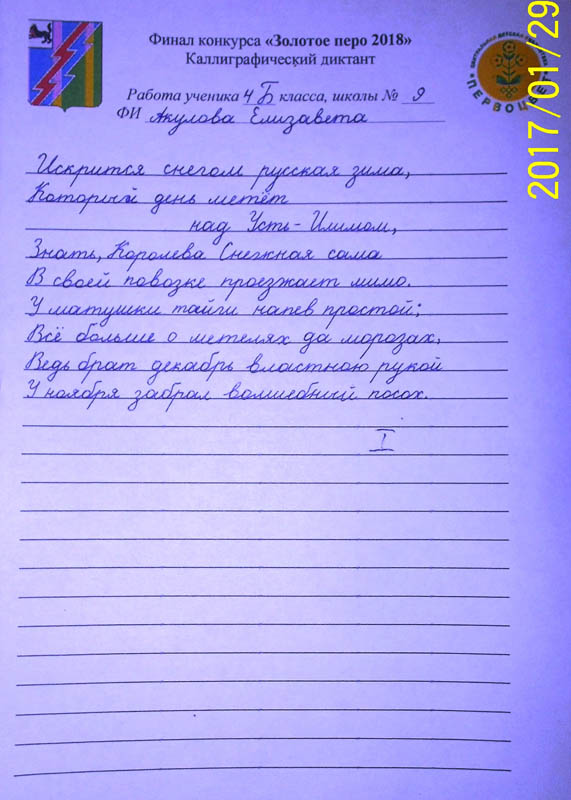 Финал конкурса «Золотое перо 2018»
Каллиграфический диктант
Работа ученика 4 Б класса, школы № 9
ФИ Акулова Елизавета
Искрится снегом русская зима,
Который день метёт
над Усть-Илимом,
Знать, Королева Снежная сама
В своей повозке проезжает мимо.
У матушки тайги напев простой;
Всё больше о метелях да морозах,
Ведь брат декабрь властною рукой
У ноября забрал волшебный посох.
I
ПЕРВОЦВЕТ
2017/01/29